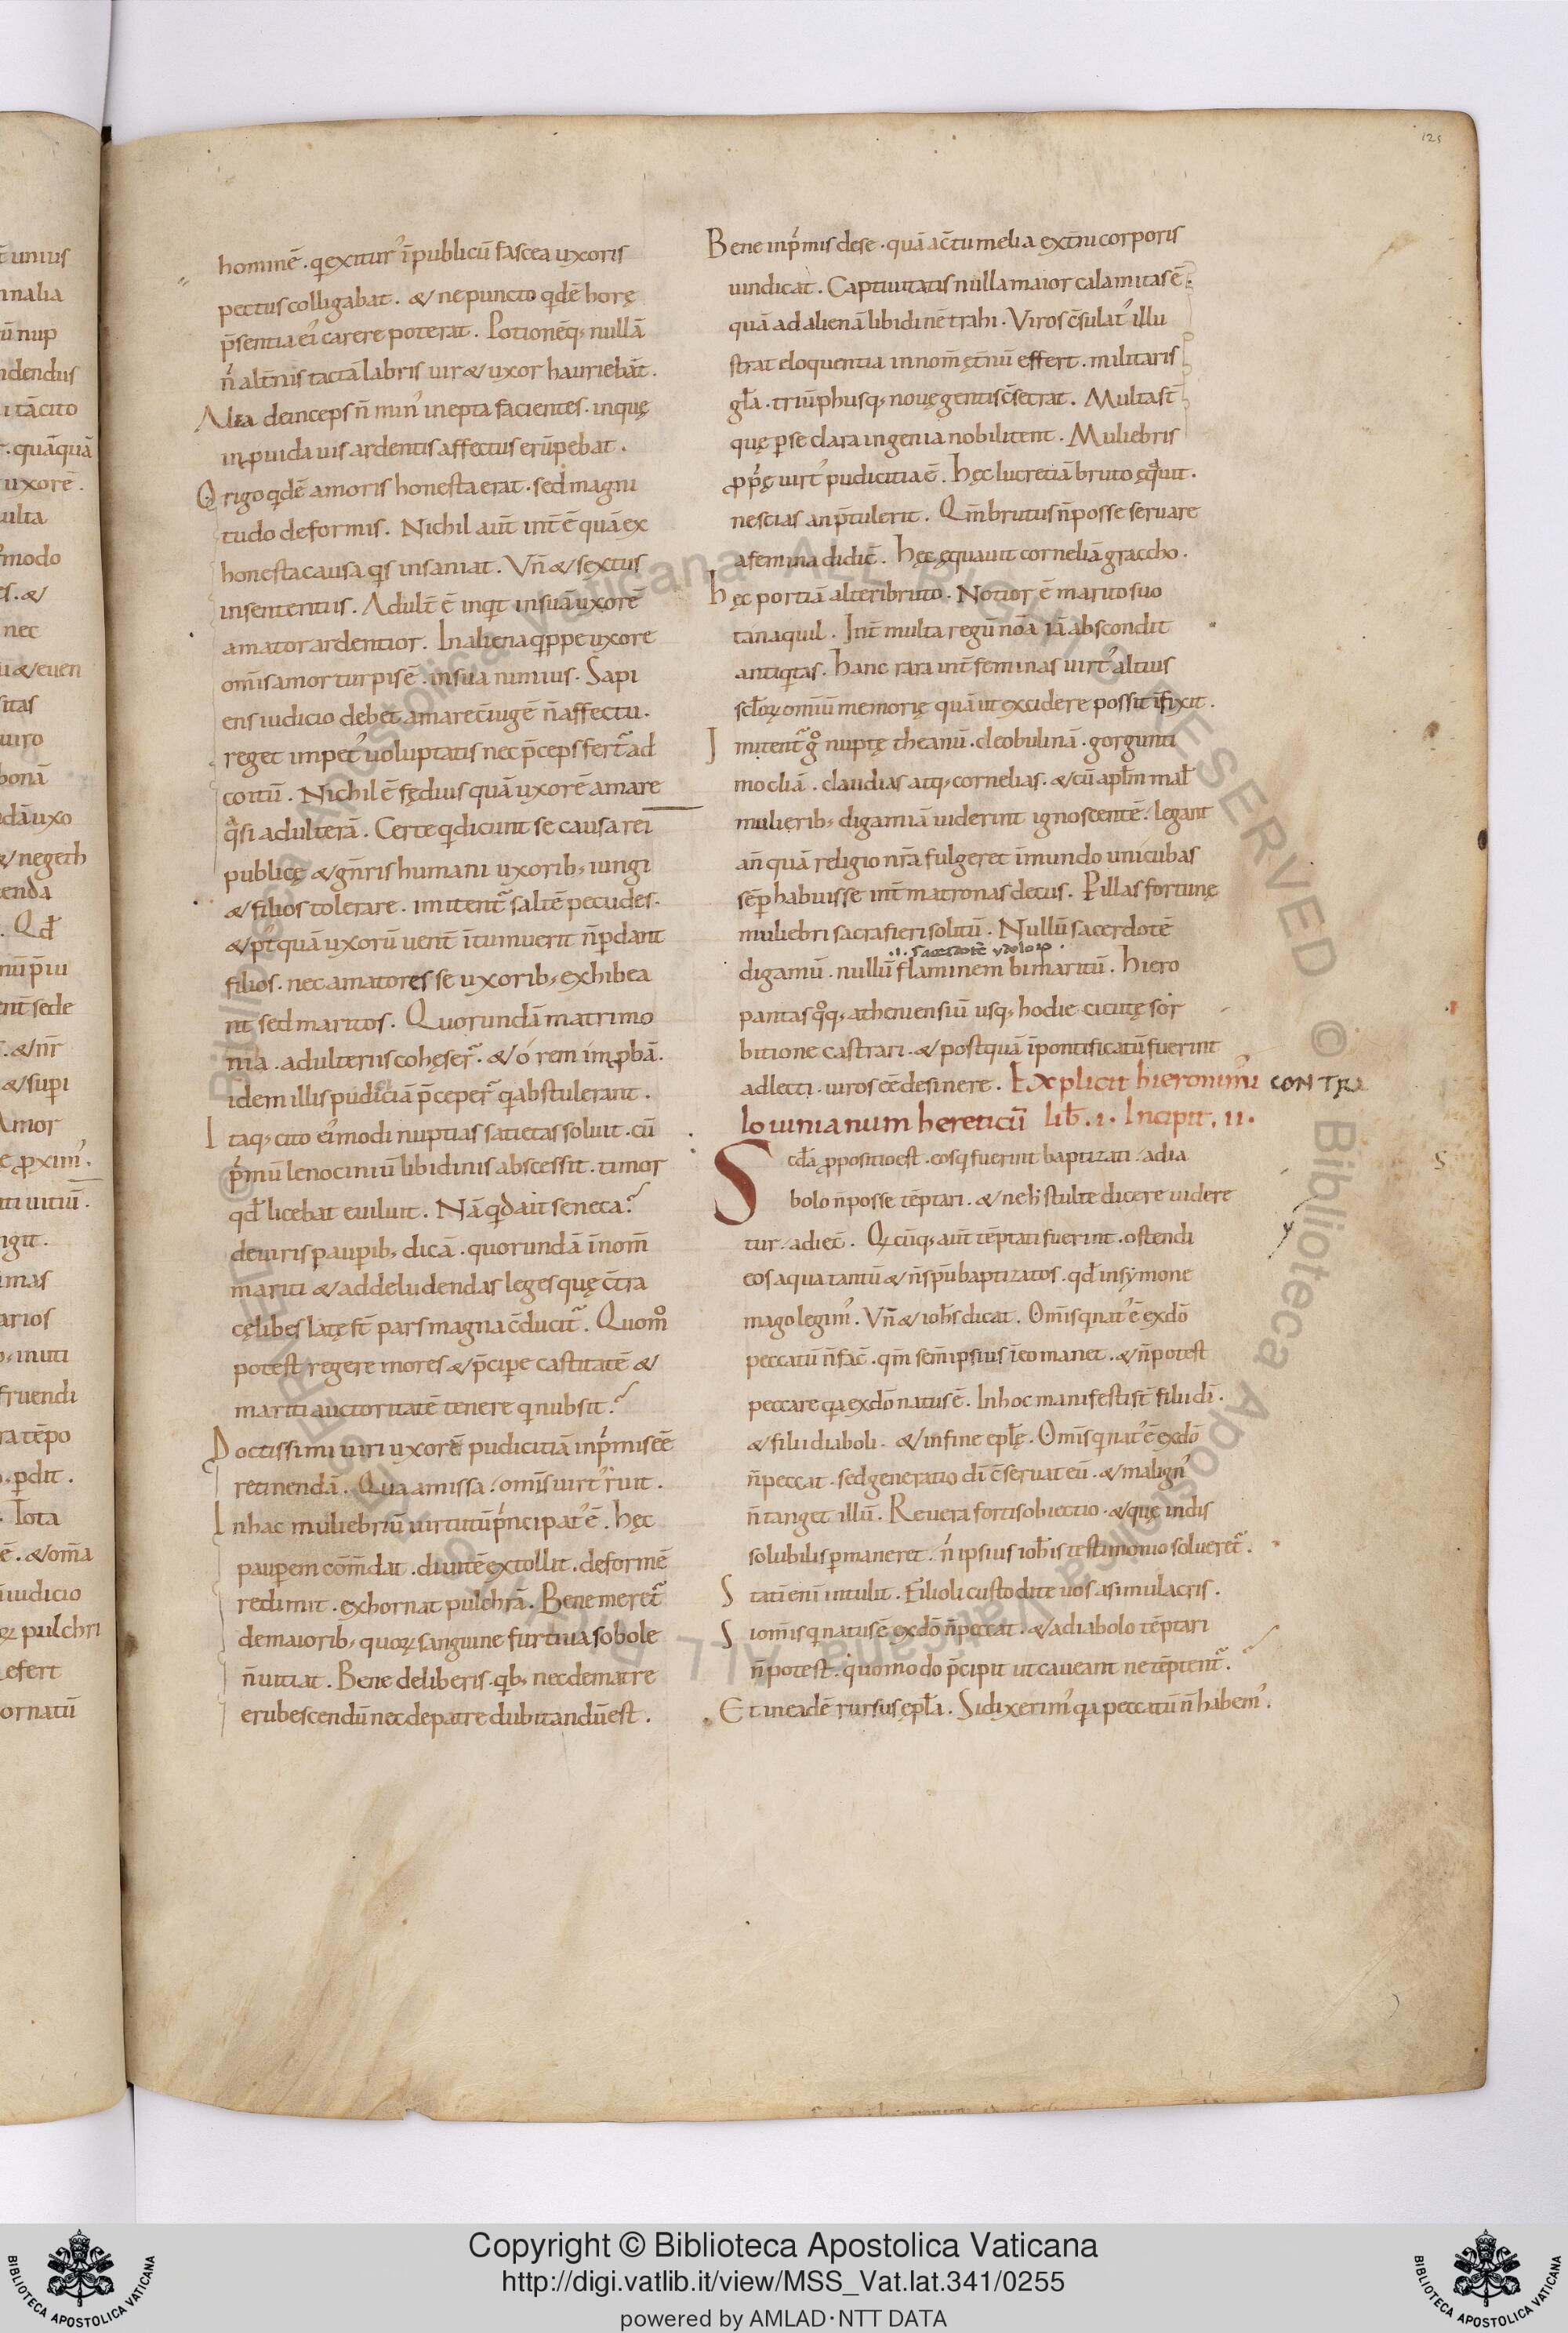 125
hominē. q exitur᾽ ī publicū fascea uxoris
pectus colligabat. & ne puncto qdē horę
p̄sentia ei᾽ carere poterat. Potionēq; nullā
ń alt̄nis tactā labris uir & uxor hauriebāt.
Alia deinceps n̄ min᾽ inepta facientes. in quę
inꝓuida uis ardentis affectus erūpebat.
Origo qdē amoris honesta erat. sed magni
tudo deformis. Nichil aūt int̄ ē quā ex
honesta causa qs insaniat. Vn̄ & sextus
in sententiis. Adult̄ ē inqt in suā uxorē
amator ardentior. In aliena qppe uxore
om̄is amor turpis ē. in sua nimius. Sapi
ens iudicio debet amare c̄iugē n̄ affectu.
reget impet᾽ uoluptatis nec p̄ceps fert̄ ad
coitū. Nichil ē fędius quā uxorē amare
qsi adulterā. Certe q dicunt se causa rei
publicę & gn̄ris humani uxorib; iungi
& filios tolerare. imitent̄ saltē pecudes.
& pt quā uxorū uent̄ ītumuerit n̄ pdant
filios. nec amatores se uxorib; exhibea
nt sed maritos. Quorundā matrimo
nia. adulteriis cohęser̄. & ó rem imꝓbā.
idem illis pudicitiā p̄ceper̄ q abstulerant.
Itaq; cito ei᾽modi nuptias satietas soluit. cū
p᾽mū lenociniū libidinis abscessit. timor
qđ licebat euiluit. Nā qd ait seneca?
de uiris paupib; dicā. quorundā ī nom̄
mariti & ad deludendas leges quę c̄tra
cęlibes latę st̄ pars magna c̄ducit̄. Quom̊
potest regere mores & p̄cipe castitatē &
mariti auctoritatē tenere q nubsit?
Doctissimi uiri uxorē pudicitiā inp᾽mis eē
retinendā. Qua amissa. om̄is uirt᾽ ruit.
In hac muliebriū uirtutū p᾽ncipat᾽ ē. hęc
paupem cōm̄dat. diuitē extollit. deformē
redimit. exhornat pulchrā. Bene meret̄
de maiorib; quoꝝ sanguinē furtiua sobole
n̄ uitiat. Bene de liberis. qb; nec de matre
erubescendū nec de patre dubitandū est.
Bene inp᾽mis de se. quā a c̄tumelia ext̄ni corporis
uindicat. Captiuitatis nulla maior calamitas ē
quā ad alienā libidinē trahi. Viros c̄sulat᾽ illu
strat eloquentia in nom̄ ęt̄nū effert. militaris
gła. triūphusq; nouę gentis c̄secrat. Multa st̄
quę p se clara ingenia nobilitent. Muliebris
ꝓp᾽ę uirt᾽ pudicitia ē. hęc lucretiā bruto ęqauit.
nescias an p̄tulerit. Qm̄ brutus n̄ posse seruare
a femina didic̄. hęc ęquauit corneliā graccho.
hęc portiā alteri bruto. Notior ē marito suo
tanaquil. Int̄ multa regū nōa iā abscondit
antiqtas. hanc rara int̄ feminas uirt᾽ altius
scłoꝝ om̄iū memorię quā ut excidere possit īfixit.
Imitent̄ g̊ nuptę theanū. cleobulinā. gorgunti
mocliā. claudias atq; cornelias. & cū apłm mał
mulierib; digamiā uiderint ignoscentē. legant
an̄ quā religio nr̄a fulgeret ī mundo unicubas
sēp habuisse int̄ matronas decus. P illas fortunę
muliebri sacra fieri solitū. Nullū sacerdotē
.i. sacerdotē ydoloꝝ.
digamū. nullū flaminem bimaritū. hiero
pantas qq; atheniensiū usq; hodie cicutę sor
bitione castrari. & postquā ī pontificatū fuerint
adlecti. uiros eē desinere. Explicit hieronimi CONTRA
Iouinianum hereticū lib̄. I. Incipit. II.
Scđa ꝓpositio est. eos q fuerint baptizati. a dia
bolo n̄ posse tēptari. & ne h̄ stulte dicere uidere
tur. adiec̄. Qcūq; aūt tēptati fuerint. ostendi
eos aqua tantū & n̄ spū baptizatos. qđ in symone
mago legim᾽. Vn̄ & ioħs dicat. Om̄is q nat᾽ ē ex dō
peccatū n̄ fac̄. qm̄ sem̄ ipsius ī eo manet. & n̄ potest
peccare qa ex dō natus ē. In hoc manifesti st̄ filii dī.
& filii diaboli. & in fine epłę. Om̄is q nat᾽ ē ex dō
n̄ peccat. sed generatio dī c̄seruat eū. & malign᾽
n̄ tanget illū. Reuera fortis obiectio. & quę indis
solubilis pmaneret. ń ipsius ioħis testimonio solueret̄.
Statī enī intulit. Filioli custodite uos a simulacris.
Si om̄is q natus ē ex dō n̄ peccat. & a diabolo tēptari
n̄ potest. quomodo p̄cipit ut caueant ne tēptent̄.
Et in eadē rursus epła. Si dixerim᾽ qa peccatū n̄ habem᾽.
Copyright © Biblioteca Apostolica Vaticana
http://digi.vatlib.it/view/MSS_Vat.lat.341/0255
powered by AMLAD·NTT DATA